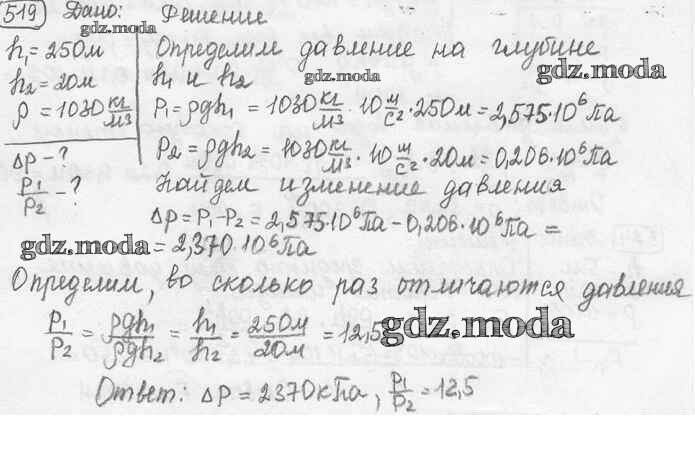 519 Дано: Решение
gdz.moda
h₁=250м Определим давление на глубине
gdz.moda
h₂=20м h₁ и h₂
gdz.moda
ρ=1030 кг/м³ P₁=ρgh₁=1030 кг/м³·10 м/с²·250м=2,575·10⁶Па
P₂=ρgh₂=1030 кг/м³·10 м/с²·20м=0,206·10⁶Па
ΔP-?
P₁/P₂-? Найдем изменение давления
ΔP=P₁-P₂=2,575·10⁶Па-0,206·10⁶Па=
gdz.moda
=2,370·10⁶Па
Определим, во сколько раз отличаются давления
P₁/P₂=ρgh₁/ρgh₂=h₁/h₂=250м/20м=12,5
gdz.moda
Ответ: ΔP=2370кПа, P₁/P₂=12,5